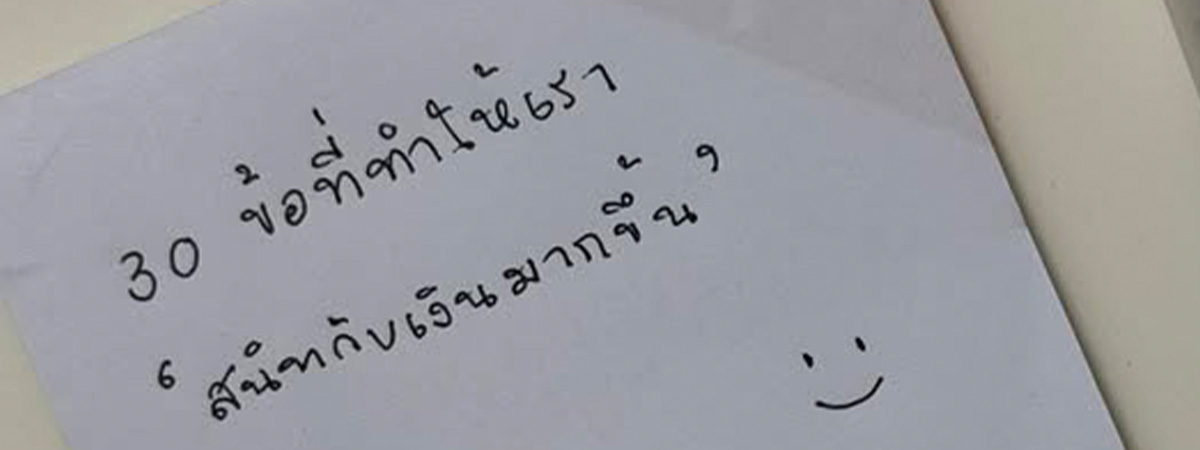 30 ข้อที่ทำให้เรา
‘สนิทกับเงินมากขึ้น’